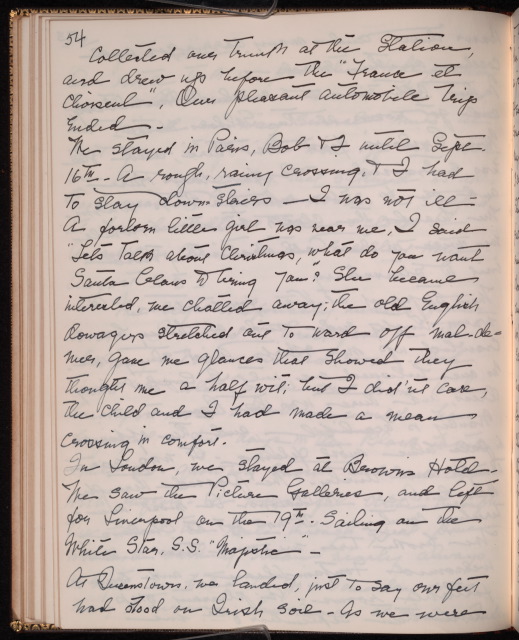 54
Collected our trunks at the Station,
and drew up before the "France et
Choiseul", Our pleasant automobile trip
Ended -
We stayed in Paris, Bob & I until Sept.
16th - A rough, rainy crossing, & I had
to stay down stairs - I was not ill -
A forlorn little girl was near me, I said
"Lets talk about Christmas, what do you want
Santa Claus to bring you"? She became
interested, we chatted away; the old English
Dowagers stretched out to ward off mal-de-
mer, gave me glances that showed they
thought me a half wit; but I did'nt care,
the child and I had made a mean
crossing in comfort.
In London, we stayed at Browns Hotel.
We saw the Picture Galleries, and left
for Liverpool on the 19th. Sailing on the
White Star, S.S. "Majestic" -
At Queenstown, we landed, just to say our feet
had stood on Irish soil - As we were